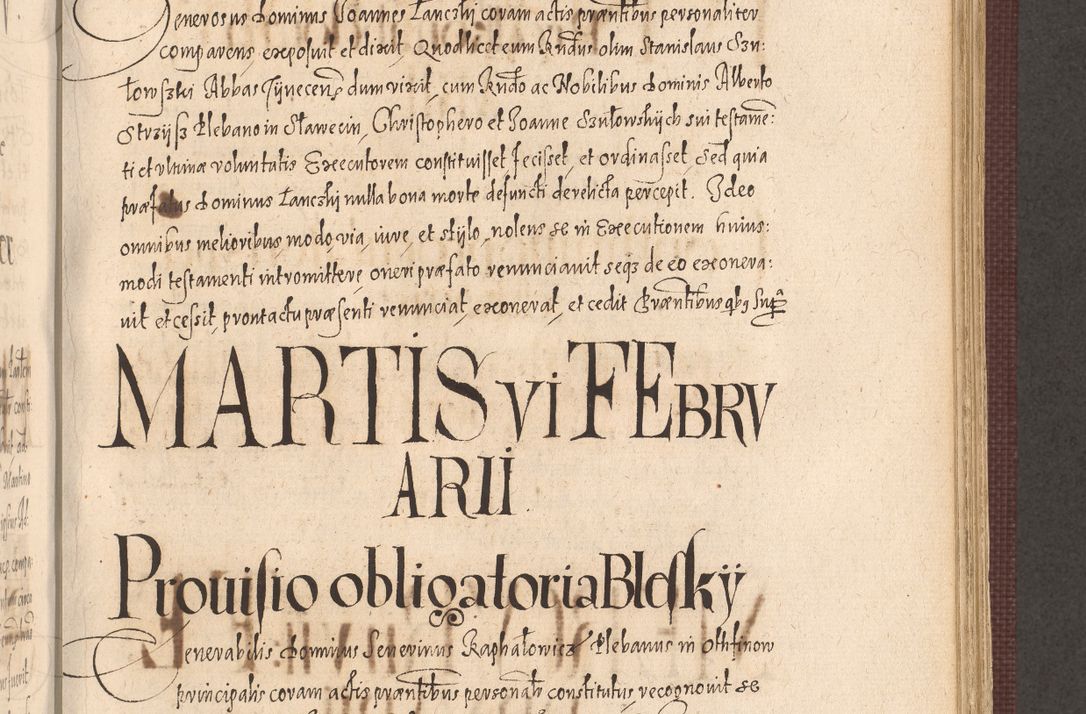 Generosus Dominus Joannes Łanczki coram actis præntibus personaliter
comparens, exposuit et dixit, Quod licet eum Rndus olim Stanislaus Szu:
łowszki Abbas Tÿnecens dum vixit, cum Rndo ac Nobilibus Dominis Alberto
Strzÿsz Plebano in Sławecin, Christophero et Joanne Szułowskÿch sui testame:
ti et ultimæ voluntatis Executorem constituisset fecisset, et ordinasset, Sed quia
præfatus Dominus Łanczki nulla bona morte defuncti derelicta percepit. Ideo
omnibus melioribus modo, via, iure, et stÿlo, nolens se in Executionem huius:
modi testamenti intromittere, oneri præfato renunciavit seqz de eo exonera:
vit et cessit, prout actu præsenti renunciat, exonerat, et cedit Præntibus qbz Supr
MARTIS VI FEBRV
ARII
Prouisio obligatoria Bleskÿ
Venerabilis Dominus Seuerinus Raphałowicz Plebanus in Othfinow
principalis coram actis præntibus personalr constitutus recognovit se